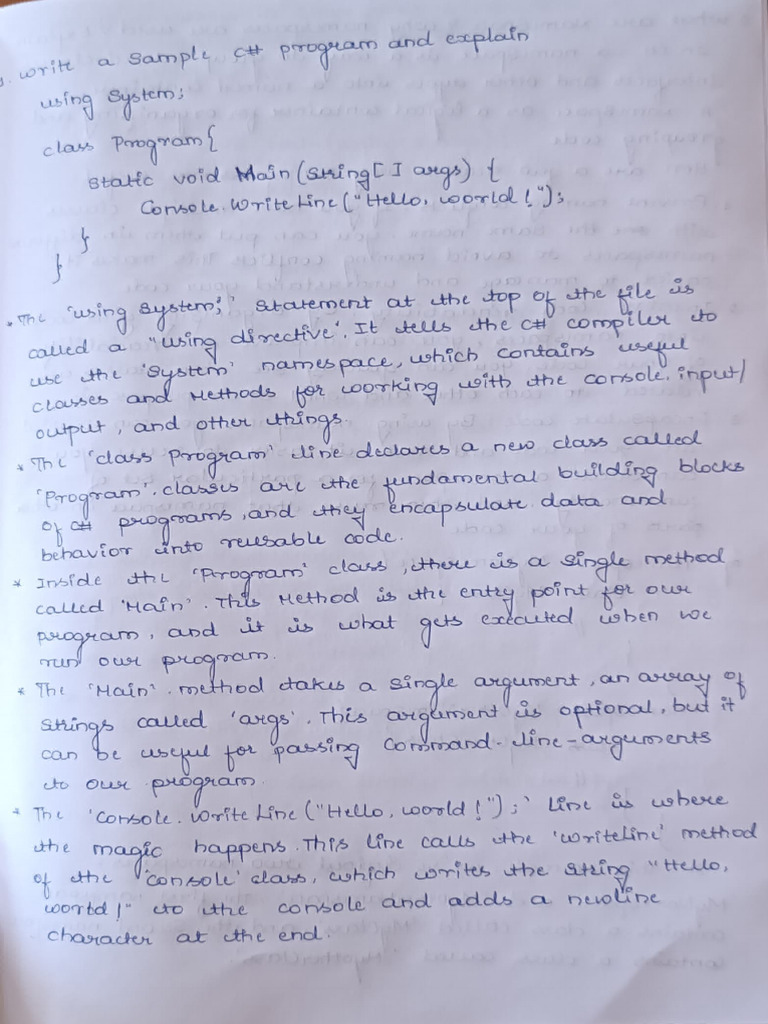 . Write a Sample C# program and explain
using System;
class Program{
static void Main(String[] args) {
Console.WriteLine("Hello, world!");
}
}
* The 'using System;' Statement at the top of the file is
called a "using directive'. It tells the C# compiler to
use the 'System' namespace, which contains useful
classes and Methods for working with the console, input/
output, and other things.
* The 'class Program' line declares a new class called
'Program'. classes are the fundamental building blocks
of C# programs, and they encapsulate data and
behavior into reusable code.
* Inside the 'Program' class, there is a single method
called 'Main'. This Method is the entry point for our
program, and it is what gets executed when we
run our program.
* The 'Main' method takes a single argument, an array of
strings called 'args'. This argument is optional, but it
can be useful for passing Command-line-arguments
to our program.
* The 'Console.WriteLine("Hello, world!");' line is where
the magic happens. This line calls the 'WriteLine' method
of the 'console' class, which writes the string "Hello,
world!" to the console and adds a newline
character at the end.